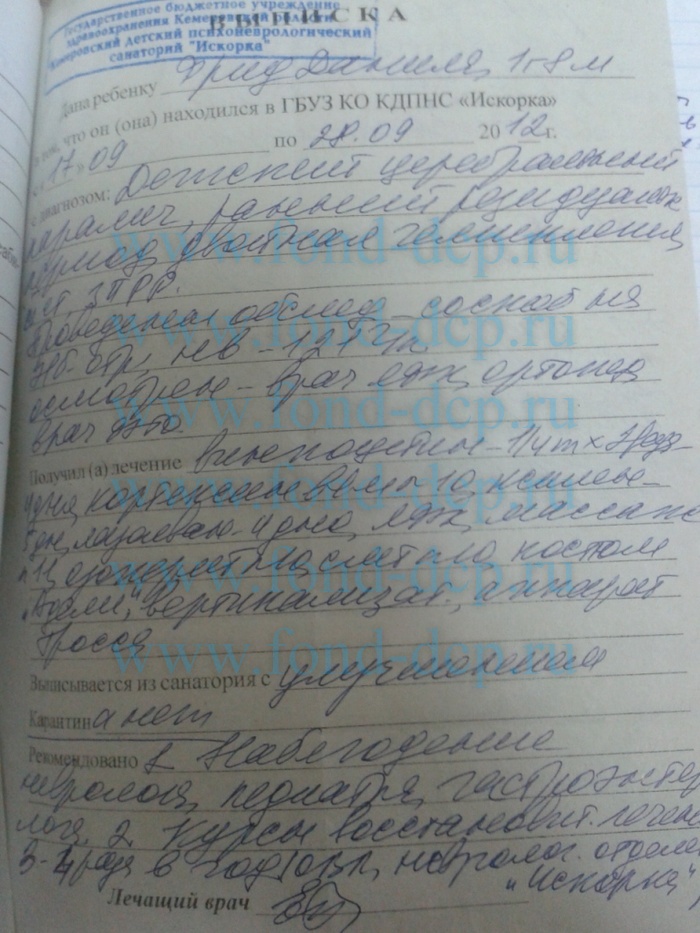 ВЫПИСКА
Государственное бюджетное учреждение
здравоохранения Кемеровской области
Кемеровский детский психоневрологический
санаторий "Искорка"
Дана ребенку Фрид Даниля, 1г8м
в том, что он (она) находился в ГБУЗ КО КДПНС «Искорка»
с «17» 09 по 28.09 2012г.
с диагнозом: Детский церебральный
паралич, ранний резидуальн
период, двойная гемиплегия
ЗПРР.
Проведены обслед – соскоб на
НВ – 127 г/л
осмотрен – врач ЛФК, ортопед,
врач ФТО.
Получил (а) лечение винпоцетин – 1/4 т х
кортексин
ЛФК, массаж
костюм
"Адели", вертикализат., аппарат
Гросса
Выписывается из санатория с улучшением
Карантина нет
Рекомендовано 1. Наблюдение
невролога, педиатра, гастроэнтеро
лога. 2. Курсы восстановит. лечен
3-4 раза в год (ОВЛ, невролог. отделен
"Искорка",
Лечащий врач
www.fond-dcp.ru
www.fond-dcp.ru
www.fond-dcp.ru
www.fond-dcp.ru
www.fond-dcp.ru